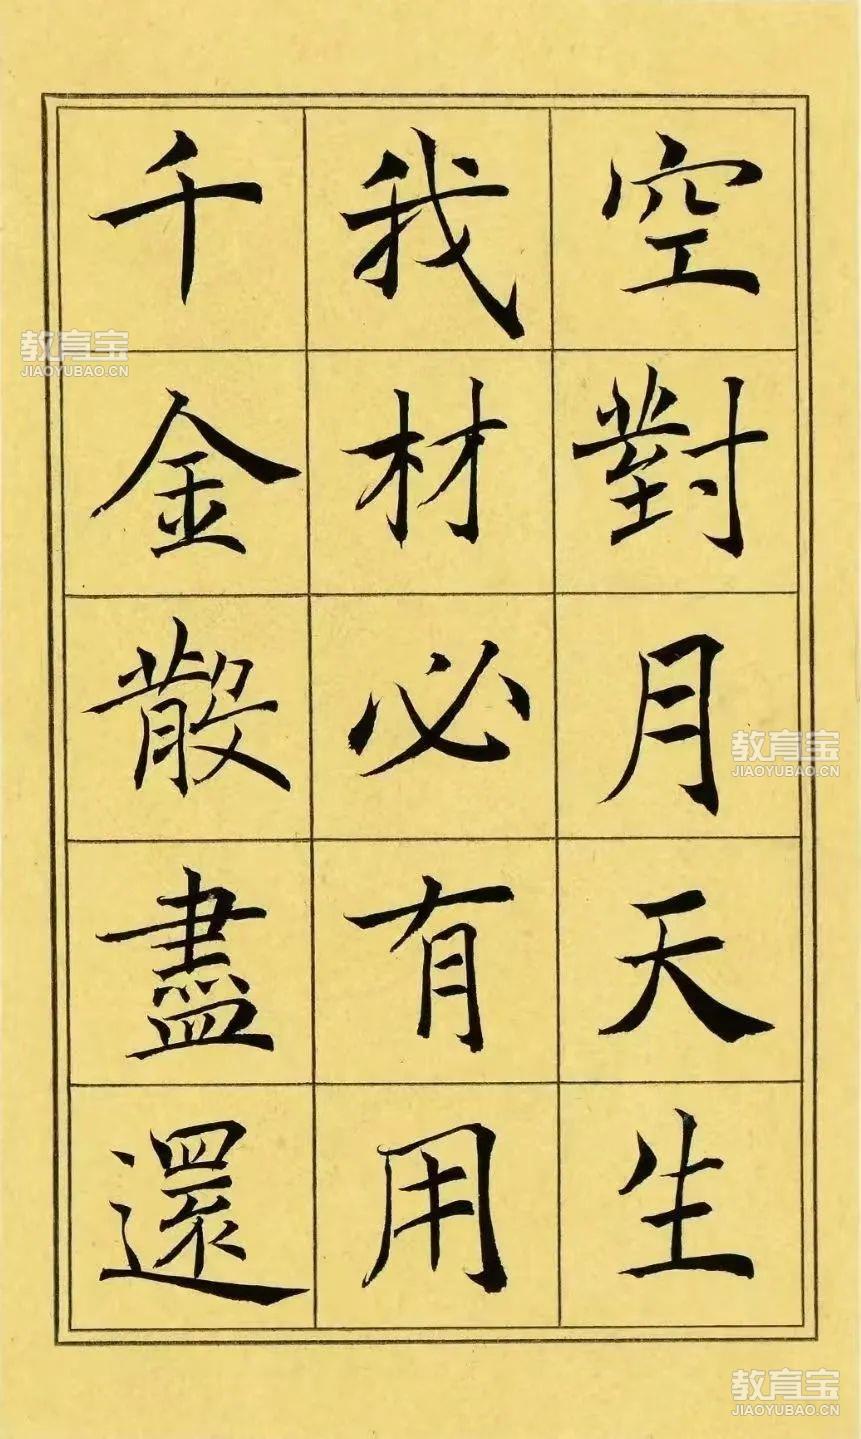 空對月天生
我材必有用
千金散盡還
教育宝
JIAOYUBAO.CN
教育宝
JIAOYUBAO.CN
教育宝
JIAOYUBAO.CN